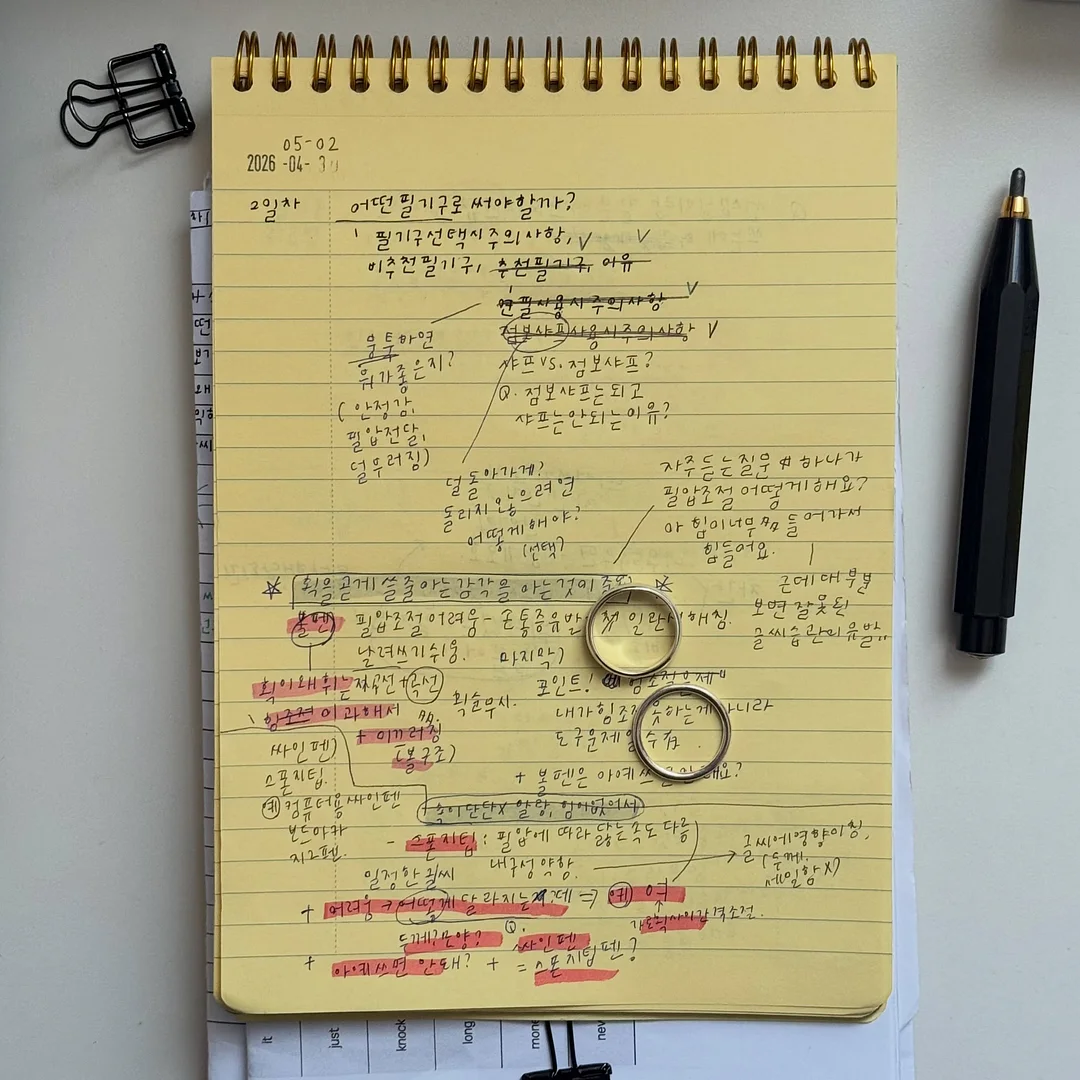 05-02
2026 -04- 30
2일차
어떤 필기구로 써야할까?
필기구 선택시 주의사항,
비추천 필기구, 추천 필기구, 이유
연필 사용시 주의사항
점보샤프 사용시 주의사항
뭉툭하면
뭐가 좋은지?
(안정감,
필압전달,
덜 부러짐)
샤프 VS. 점보샤프?
Q. 점보샤프는 되고
샤프는 안되는 이유?
덜 돌아가게?
돌리지 않으려면
어떻게 해야?
(선택?
자주 듣는 질문 中 하나가
필압조절 어떻게 해요?
아 힘이 너무 많이 들어가서
힘들어요.
근데 대부분
보면 잘못된
글씨습관이 유발
획을 곧게 쓸 줄 아는 감각을 아는 것이
볼펜
필압조절 어려움 - 손통증유발
해짐.
날려쓰기 쉬움.
마지막)
획이 왜 휘는 직선 + 곡선
힘조절이 과해서
+ 미끄러짐
(볼구조)
획순무시.
포인트! 힘조절문제"
내가 힘조절 못하는게 아니라
도구문제일 수
+ 볼펜은 아예
싸인펜)
스폰지팁.
예) 컴퓨터용싸인펜
보드마카
지그펜.
속이 단단X 말랑, 힘이없어서
- 스폰지팁 : 필압에 따라 닳는 속도 다름
내구성 약함.
글씨에 영향미침,
(두께,
세밀함X)
일정한 글씨
+ 어려움 → 어떻게 달라지는데 ⇒ 예)
두께? 모양?
Q.
+ 아예쓰면 안돼? +
싸인펜
= 스폰지팁펜?
It
just
knock
long
new